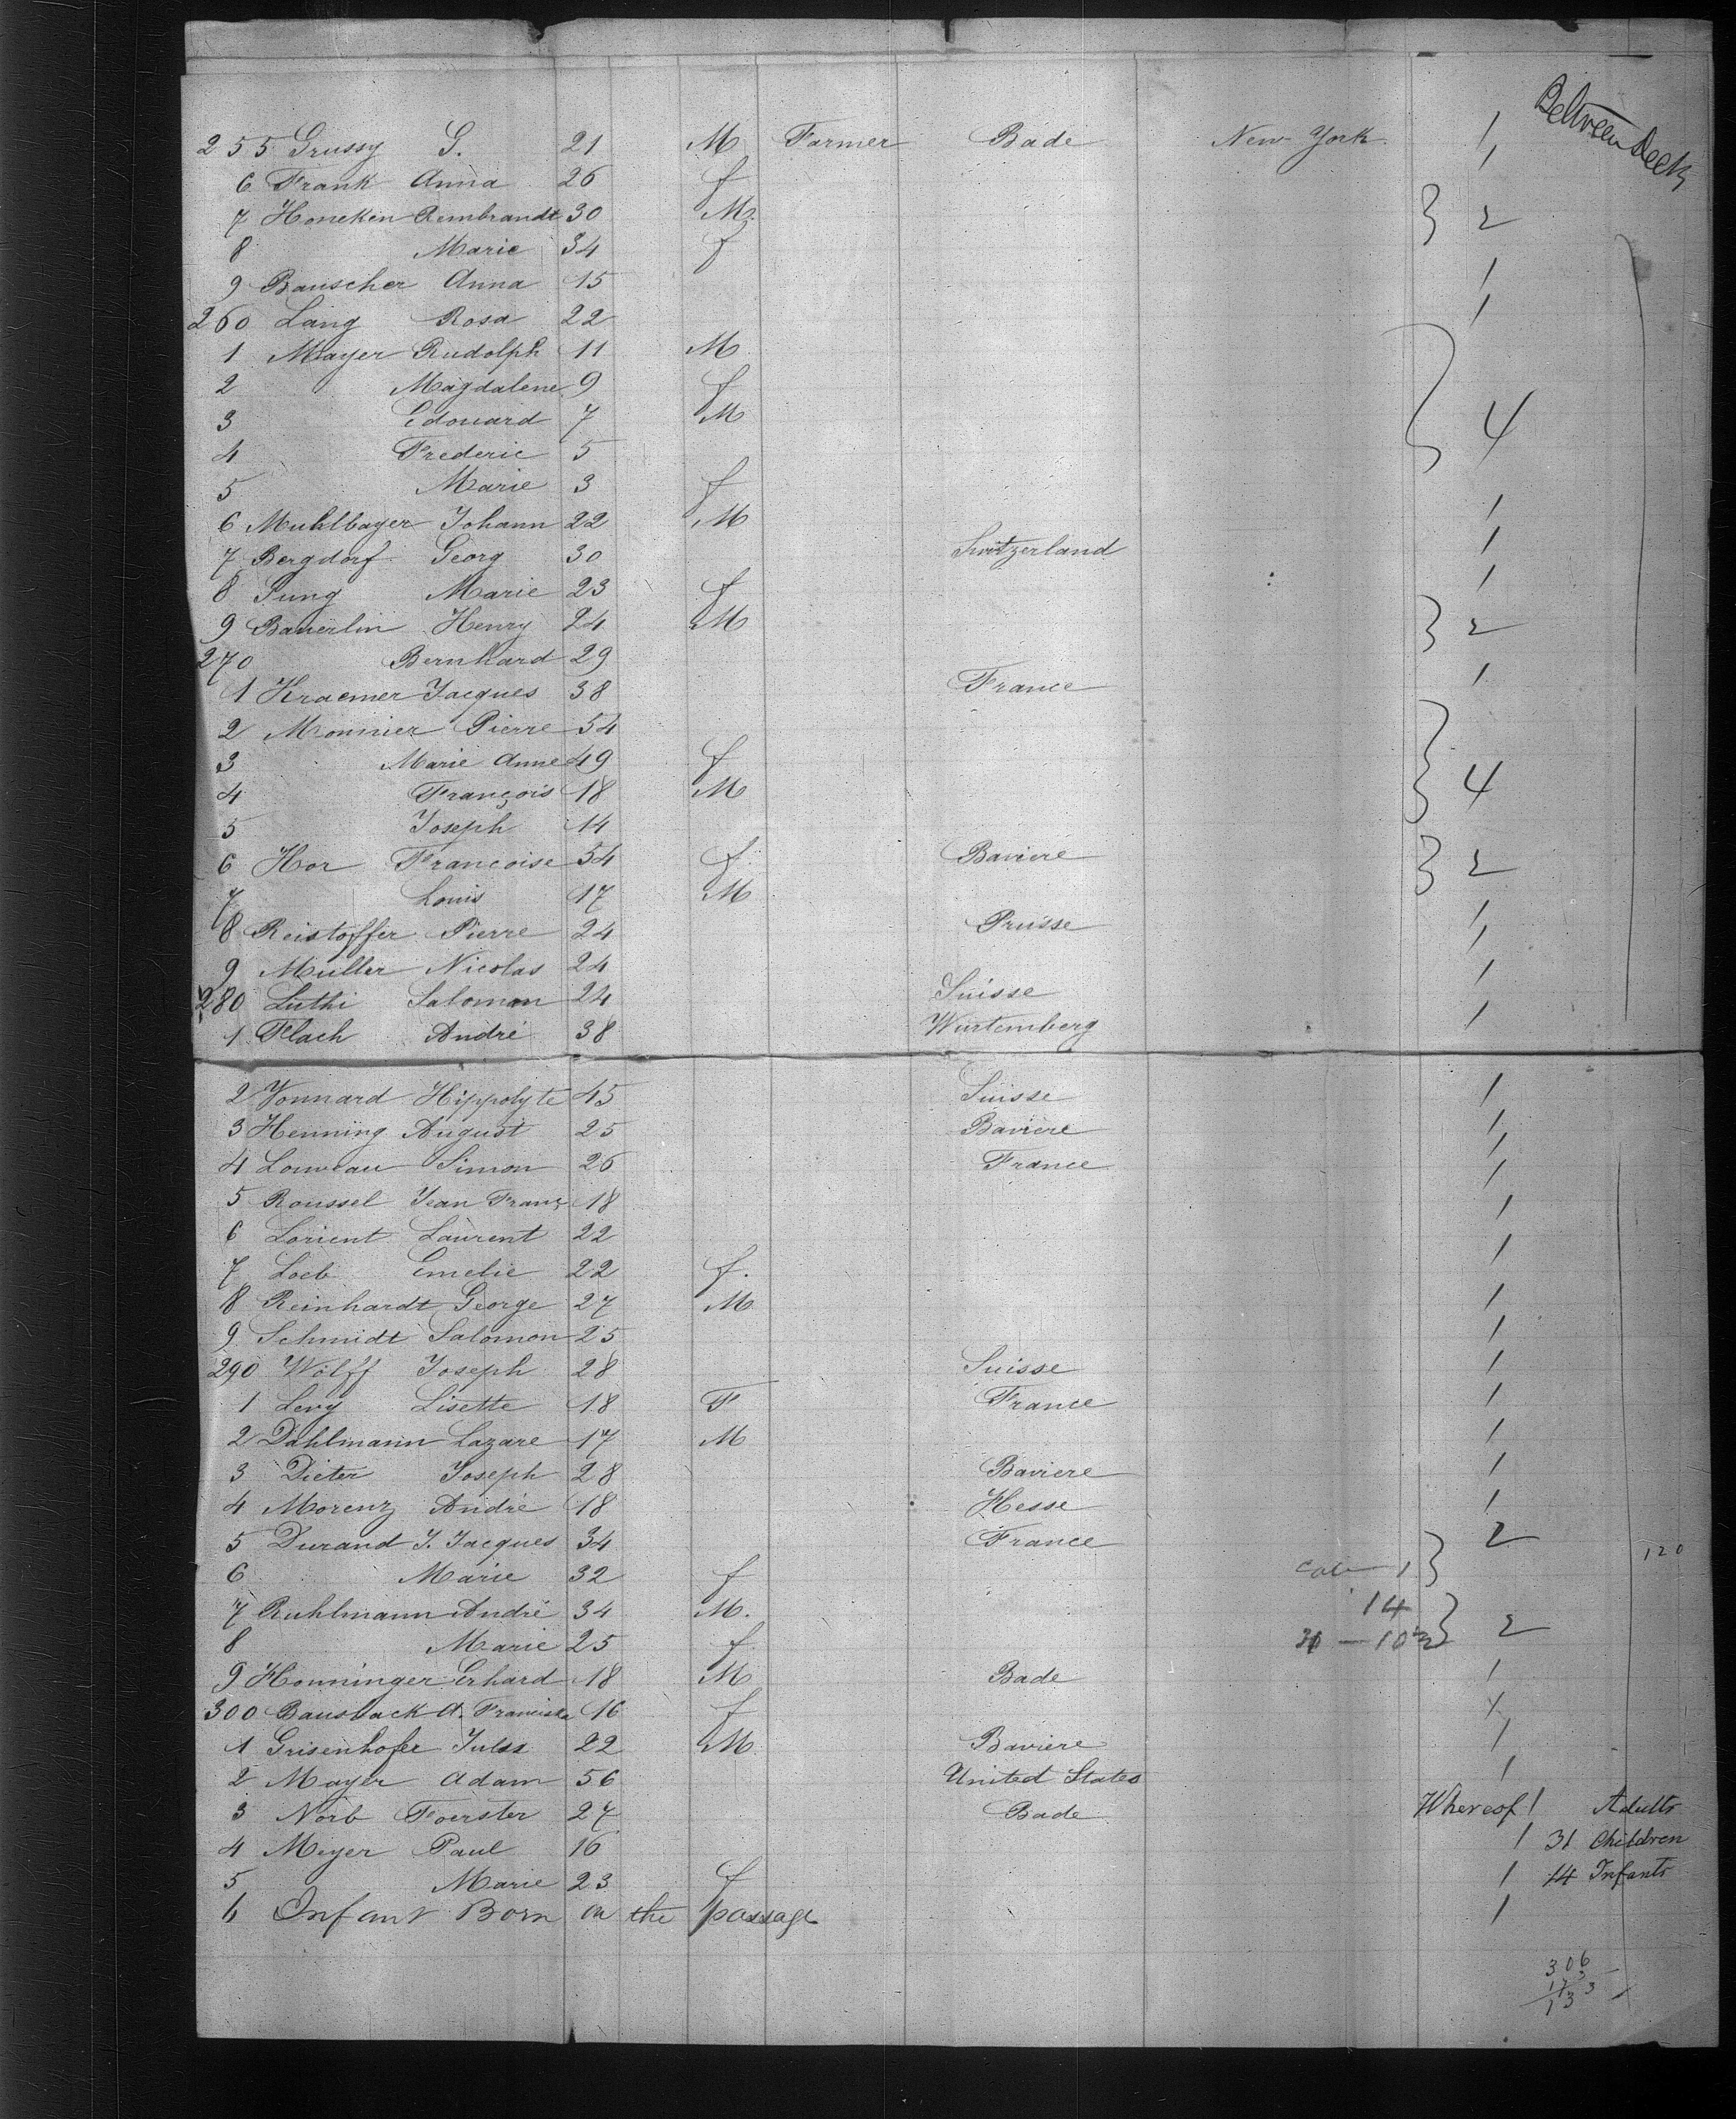 Between Deck
255 Grussy G. 21 M Farmer Bade New York 1
6 Frank Anna 26 f 1
7 Honeken Rembrandt 30 M } 2
8 Marie 34 f
9 Bauscher Anna 15 1
260 Lang Rosa 22 1
1 Mayer Rudolph 11 M
2 Magdalene 9 f
3 Edouard 7 M } 4
4 Frederic 5
5 Marie 3 f
6 Muhlbayer Johann 22 M 1
7 Bergdorf Georg 30 Switzerland 1
8 Jung Marie 23 f 1
9 Bauerlin Henry 24 M } 2
270 Bernhard 29
1 Kraemer Jacques 38 France 1
2 Monnier Pierre 54
3 Marie Anne 49 f
4 François 18 M } 4
5 Joseph 14
6 Hor Francoise 54 f Baviere } 2
7 Louis 17 M
8 Reistoffer Pierre 24 Prusse 1
9 Muller Nicolas 24 1
280 Luthi Salomon 24 Suisse 1
1 Flach André 38 Wurtemberg 1
2 Vonnard Hippolyte 45 Suisse 1
3 Henning August 25 Baviere 1
4 Louveau Simon 26 France 1
5 Roussel Jean Franç 18 1
6 Lorient Laurent 22 1
7 Loeb Emelie 22 f. 1
8 Reinhardt George 27 M 1
9 Schmidt Salomon 25 1
290 Wolff Joseph 28 Suisse 1
1 Levy Lisette 18 F France 1
2 Dahlmann Lazare 17 M 1
3 Dieter Joseph 28 Baviere 1
4 Morenz André 18 Hesse 1
5 Durand J. Jacques 34 France 2
6 Marie 32 f 1 } 120
7 Ruhlmann André 34 M. 14
8 Marie 25 f } 2
9 Honninger Erhard 18 M Bade 1
300 Bausback A. Franciska 16 f 1
1 Grisenhofer Jules 22 M Baviere 1
2 Mayer Adam 56 United States 1
3 Norb Foerster 27 Bade Whereof 1 Adults
4 Meyer Paul 16 1 31 Children
5 Marie 23 f 1 14 Infants
6 Infant Born on the passage 1
306
173
133